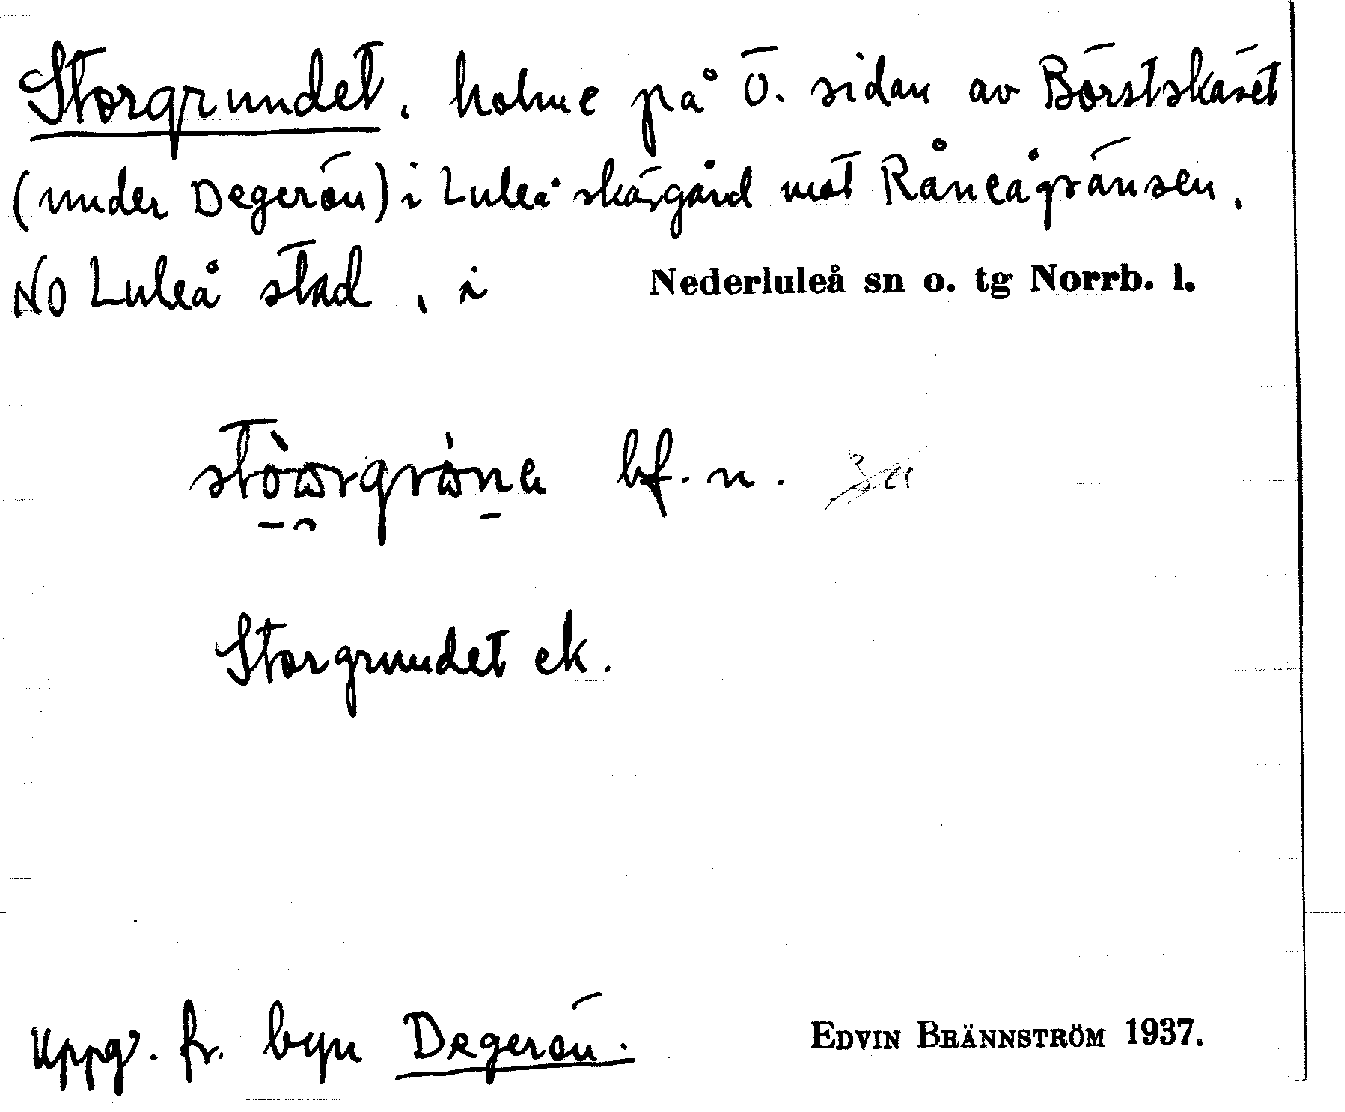 Storgrundet, holme på Ö. sidan av Börstskäret
(under Degerön) i Luleå skärgård mot Råneågränsen,
NO Luleå stad, i Nederluleå sn o. tg Norrb. l.
bf. n.
Storgrundet ek.
Uppg. fr. byn Degerön. EDVIN BRÄNNSTRÖM 1937.